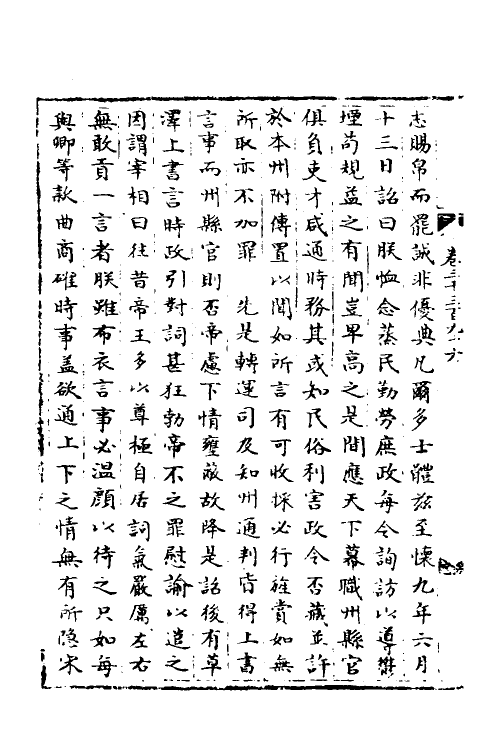 卷三千三百九十六
志賜帛而罷誠非優典凡爾多士體兹至懷九年六月
十三日詔曰朕恤念蒸民勤勞庶政每令詢訪以導鬱
堙苟規益之有聞豈卑高之是間應天下幕職州縣官
俱負吏才咸通時務其或知民俗利害政令否臧並許
於本州附傳置以聞如所言有可收採必行旌賞如無
所取亦不加罪 先是轉運司及知州通判皆得上書
言事而州縣官則否帝慮下情壅蔽故降是詔後有草
澤上書言時政引對詞甚狂勃帝不之罪慰諭以遣之
因謂宰相曰往昔帝王多以尊極自居詞氣嚴厲左右
無敢貢一言者朕雖布衣言事必溫顏以待之只如每
與卿等款曲商確時事蓋欲通上下之情無有所隱宋